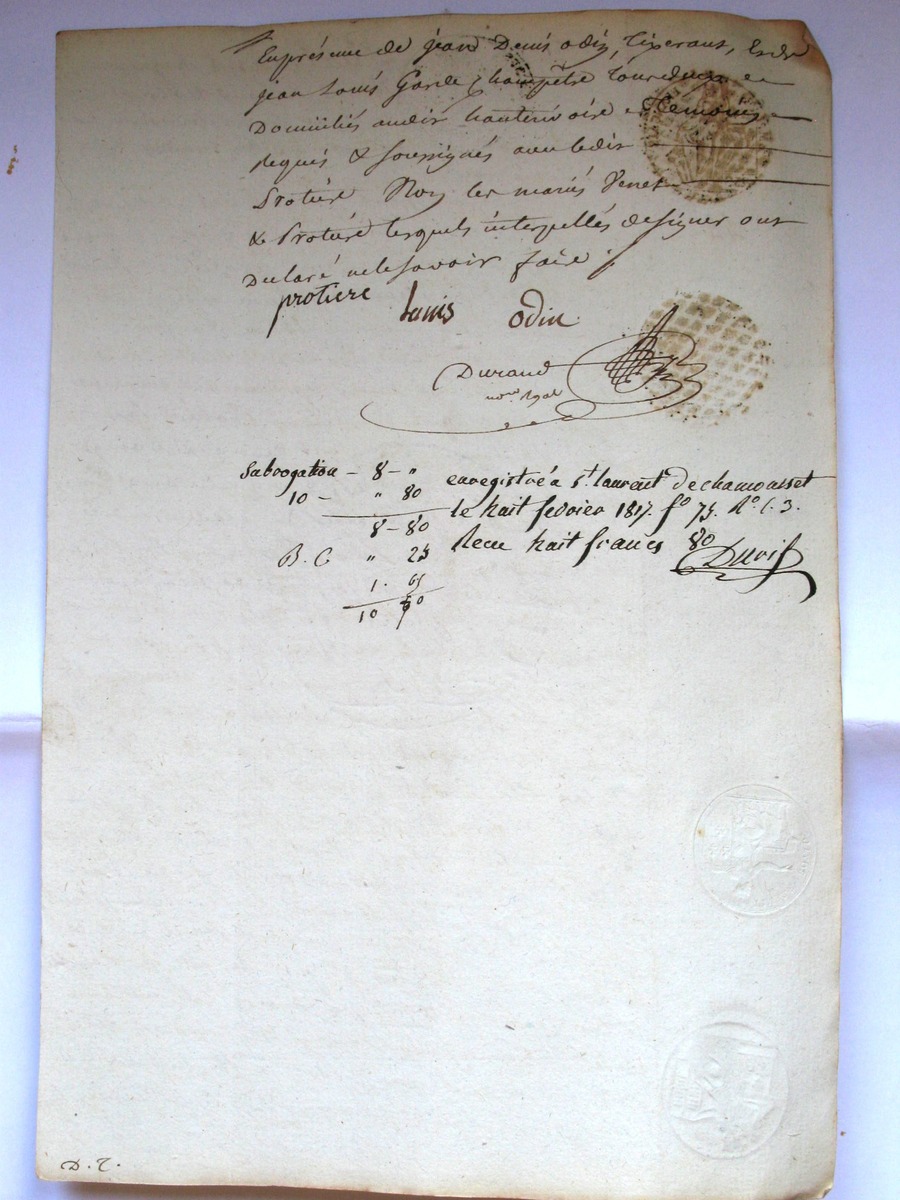 En présence de jean Denis odin, Tixerant, Et de
jean Louis Garde Champêtre Tous deux
Domiciliés audit hauterivoire Temoins
Requis & soussignés avec ledit
Protière Non les mariés Venet
& Protière lesquels interpellés de signer ont
Declaré ne le savoir faire .
protiere Louis odin
Durand
nore Royal
Subrogation – 8 – "
10 – " 80
8 – 80
B. C " 25
1. 65
10 70
enregistré a st laurent de chamousset
le huit fevrier 1817. fo 75. Ro C. 3.
Recu huit francs 80
D. T.